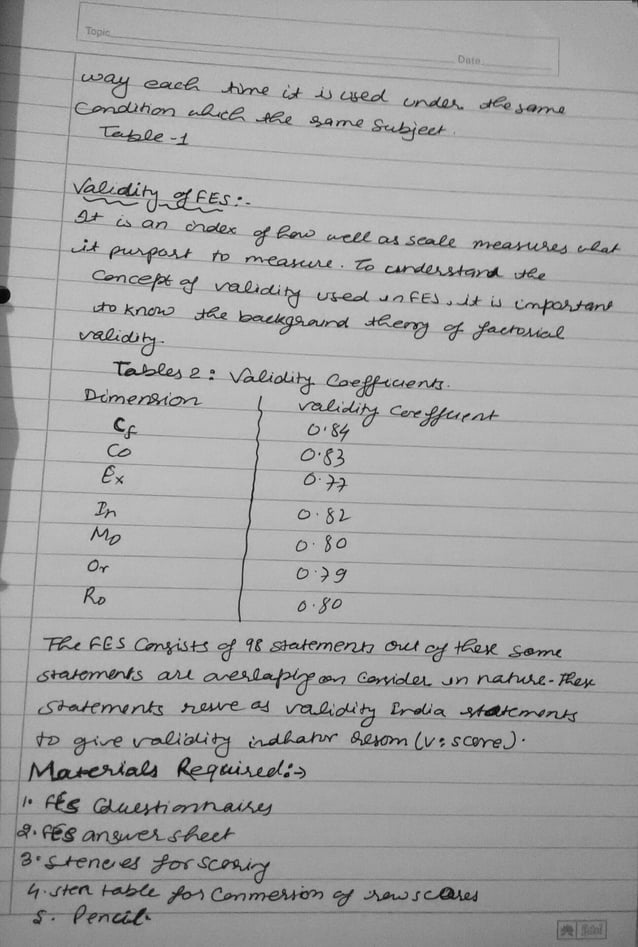 Topic
Date
way each time it is used under the same
Condition which the same Subject.
Table-1
Validity of FES:-
It is an index of how well as scale measures what
it purpost to measure. To understand the
Concept of validity used in FES, it is important
to know the background theory of factorial
validity.
Tables 2: Validity Coefficients.
Dimension validity Coefficient
Cf 0.84
Co 0.83
Ex 0.77
In 0.82
Mo 0.80
Or 0.79
Ro 0.80
The FES Consists of 98 statements out of these some
statements are overlaping on Consider in nature. These
Statements serve as validity India statements
to give validity (v: score).
Materials Required:→
1. FES Questionnaires
2. FES answer sheet
3. Stencies for scoring
4. sten table for Conmersion of raw scores
5. Pencil.